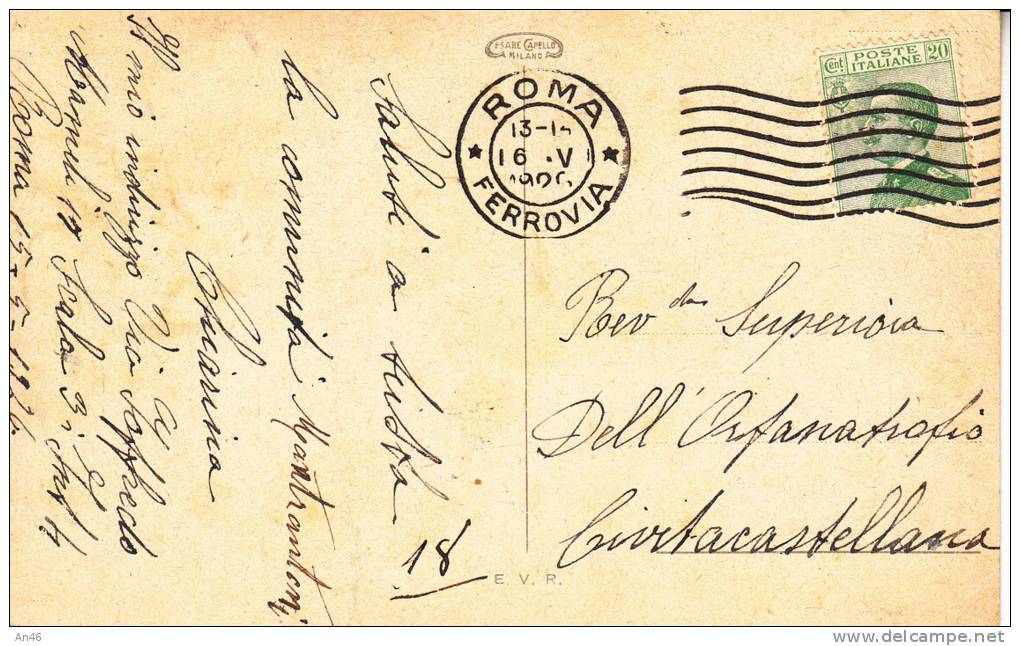 CESARE CAPELLO
MILANO
ROMA
13-14
16 . V
1926
FERROVIA
POSTE
ITALIANE
Cent 20
Rev da Superiora
Dell'Orfanatrofio
Civitacastellana
Saluti a tutta
la comunità Mastrantoni
Chiarina
mio indirizzo Via Goffredo
Mameli 19 Scala 3 Int 4
Roma 15-5-1926
18
E. V. R.
An46
delcampe.net